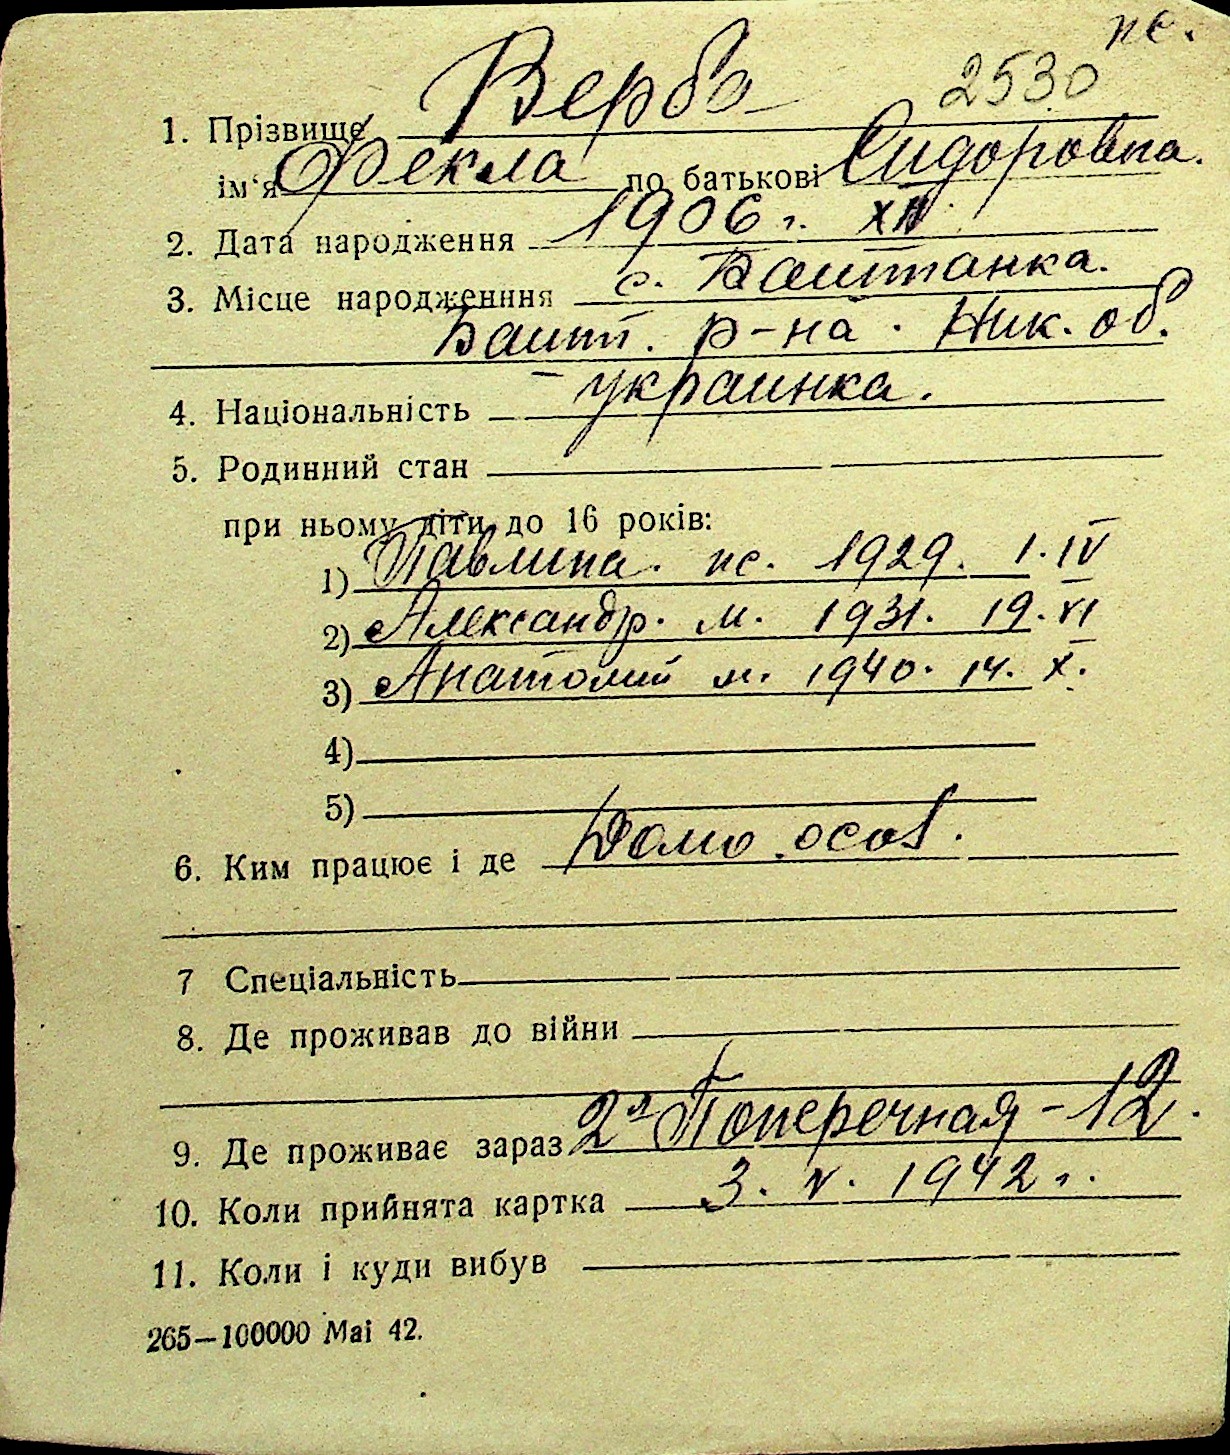 2530
1. Прізвище Верба
ім'я Фекла по батькові Сидоровна.
2. Дата народження 1906 г. XII
3. Місце народженння с. Баштанка.
Башт. р-на. Ник. об.
4. Національність украинка.
5. Родинний стан
при ньому діти до 16 років:
1) Павлина. ж. 1929. 1. IV
2) Александр. м. 1931. 19. VI
3) Анатолий м. 1940. 14. X.
4)
5)
6. Ким працює і де Домо.
7 Спеціальність
8. Де проживав до війни
9. Де проживає зараз 2я Поперечная - 12.
10. Коли прийнята картка 3. V. 1942 г.
11. Коли і куди вибув
265—100000 Mai 42.